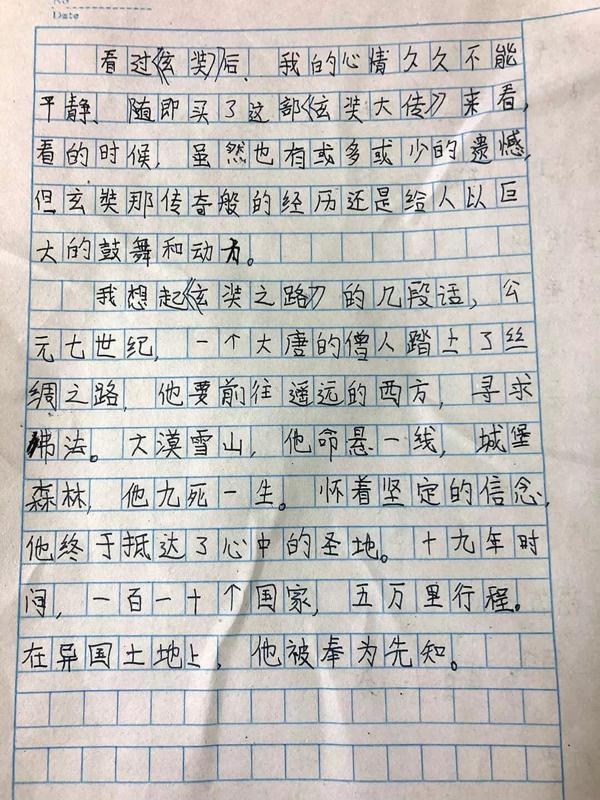 No
Date
看过《玄奘》后、我的心情久久不能
平静、随即买了这部《玄奘大传》来看,
看的时候,虽然也有或多或少的遗憾,
但玄奘那传奇般的经历还是给人以巨
大的鼓舞和动力。
我想起《玄奘之路》的几段话,公
元七世纪,一个大唐的僧人踏上了丝
绸之路,他要前往遥远的西方,寻求
佛法。大漠雪山,他命悬一线,城堡
森林,他九死一生。怀着坚定的信念,
他终于抵达了心中的圣地。十九年时
间,一百一十个国家,五万里行程。
在异国土地上,他被奉为先知。